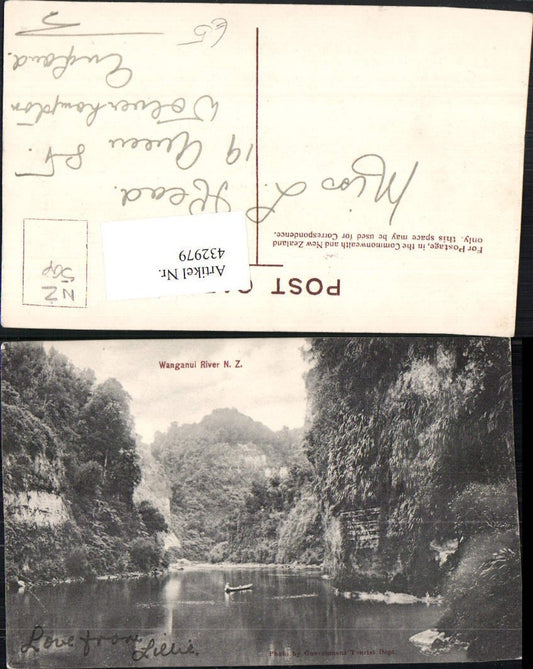 POST C
For Postage, in the Commonwealth and New Zealand
only, this space may be used for Correspondence.
Artikel Nr.
432979
NZ
50p
Miss L. Head.
19 Queen St.
Wolverhampton
England.
65
Wanganui River N. Z.
Love from
Lillie.
Photo by Government Tourist Dept.